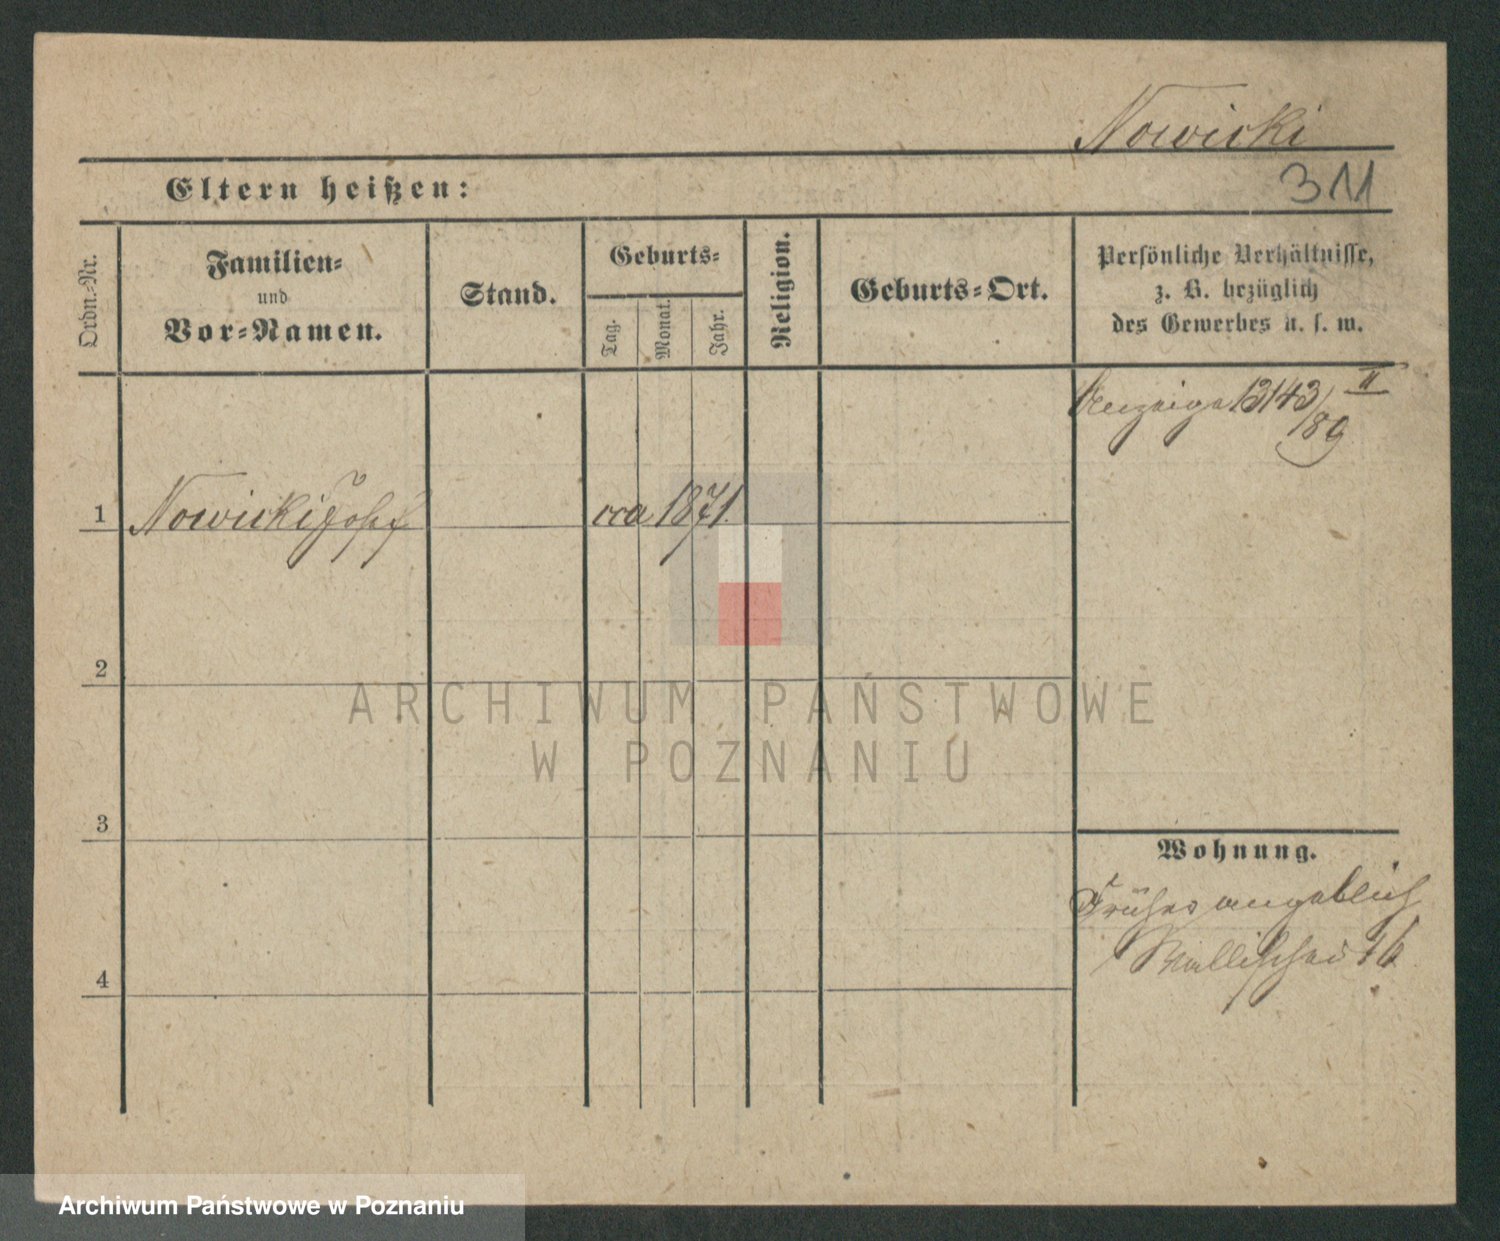 Nowicki
311
Eltern heißen:
Ordn.-Nr.
Familien-
und
Vor-Namen.
Stand.
Geburts-
Tag.
Monat.
Jahr.
Religion.
Geburts-Ort.
Persönliche Verhältnisse,
z. B. bezüglich
des Gewerbes u. s. w.
Anzeige 13143/89 II
1 Nowicki Josef cca 1871.
2
ARCHIWUM PAŃSTWOWE
W POZNANIU
3
Wohnung.
Früher angeblich
Wallischei 16
4
Archiwum Państwowe w Poznaniu